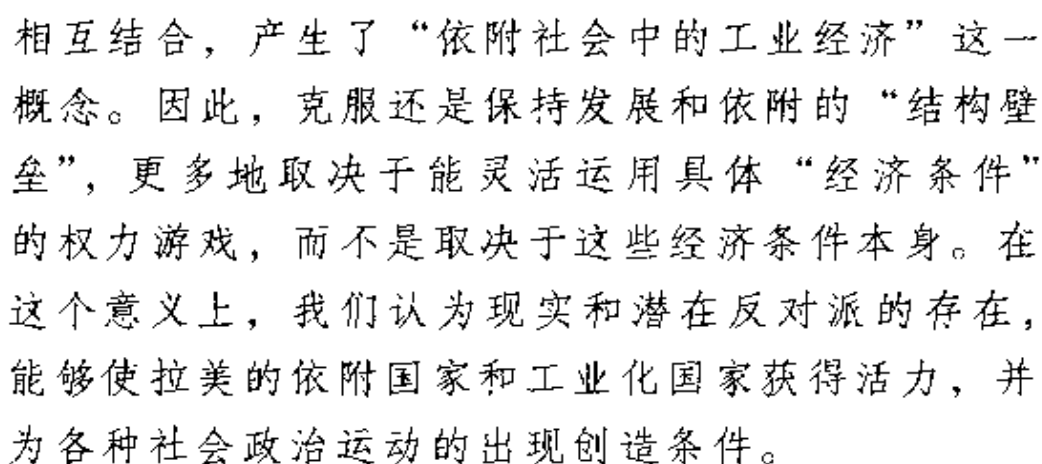 相互结合，产生了“依附社会中的工业经济”这一
概念。因此，克服还是保持发展和依附的“结构壁
垒”，更多地取决于能灵活运用具体“经济条件”
的权力游戏，而不是取决于这些经济条件本身。在
这个意义上，我们认为现实和潜在反对派的存在，
能够使拉美的依附国家和工业化国家获得活力，并
为各种社会政治运动的出现创造条件。